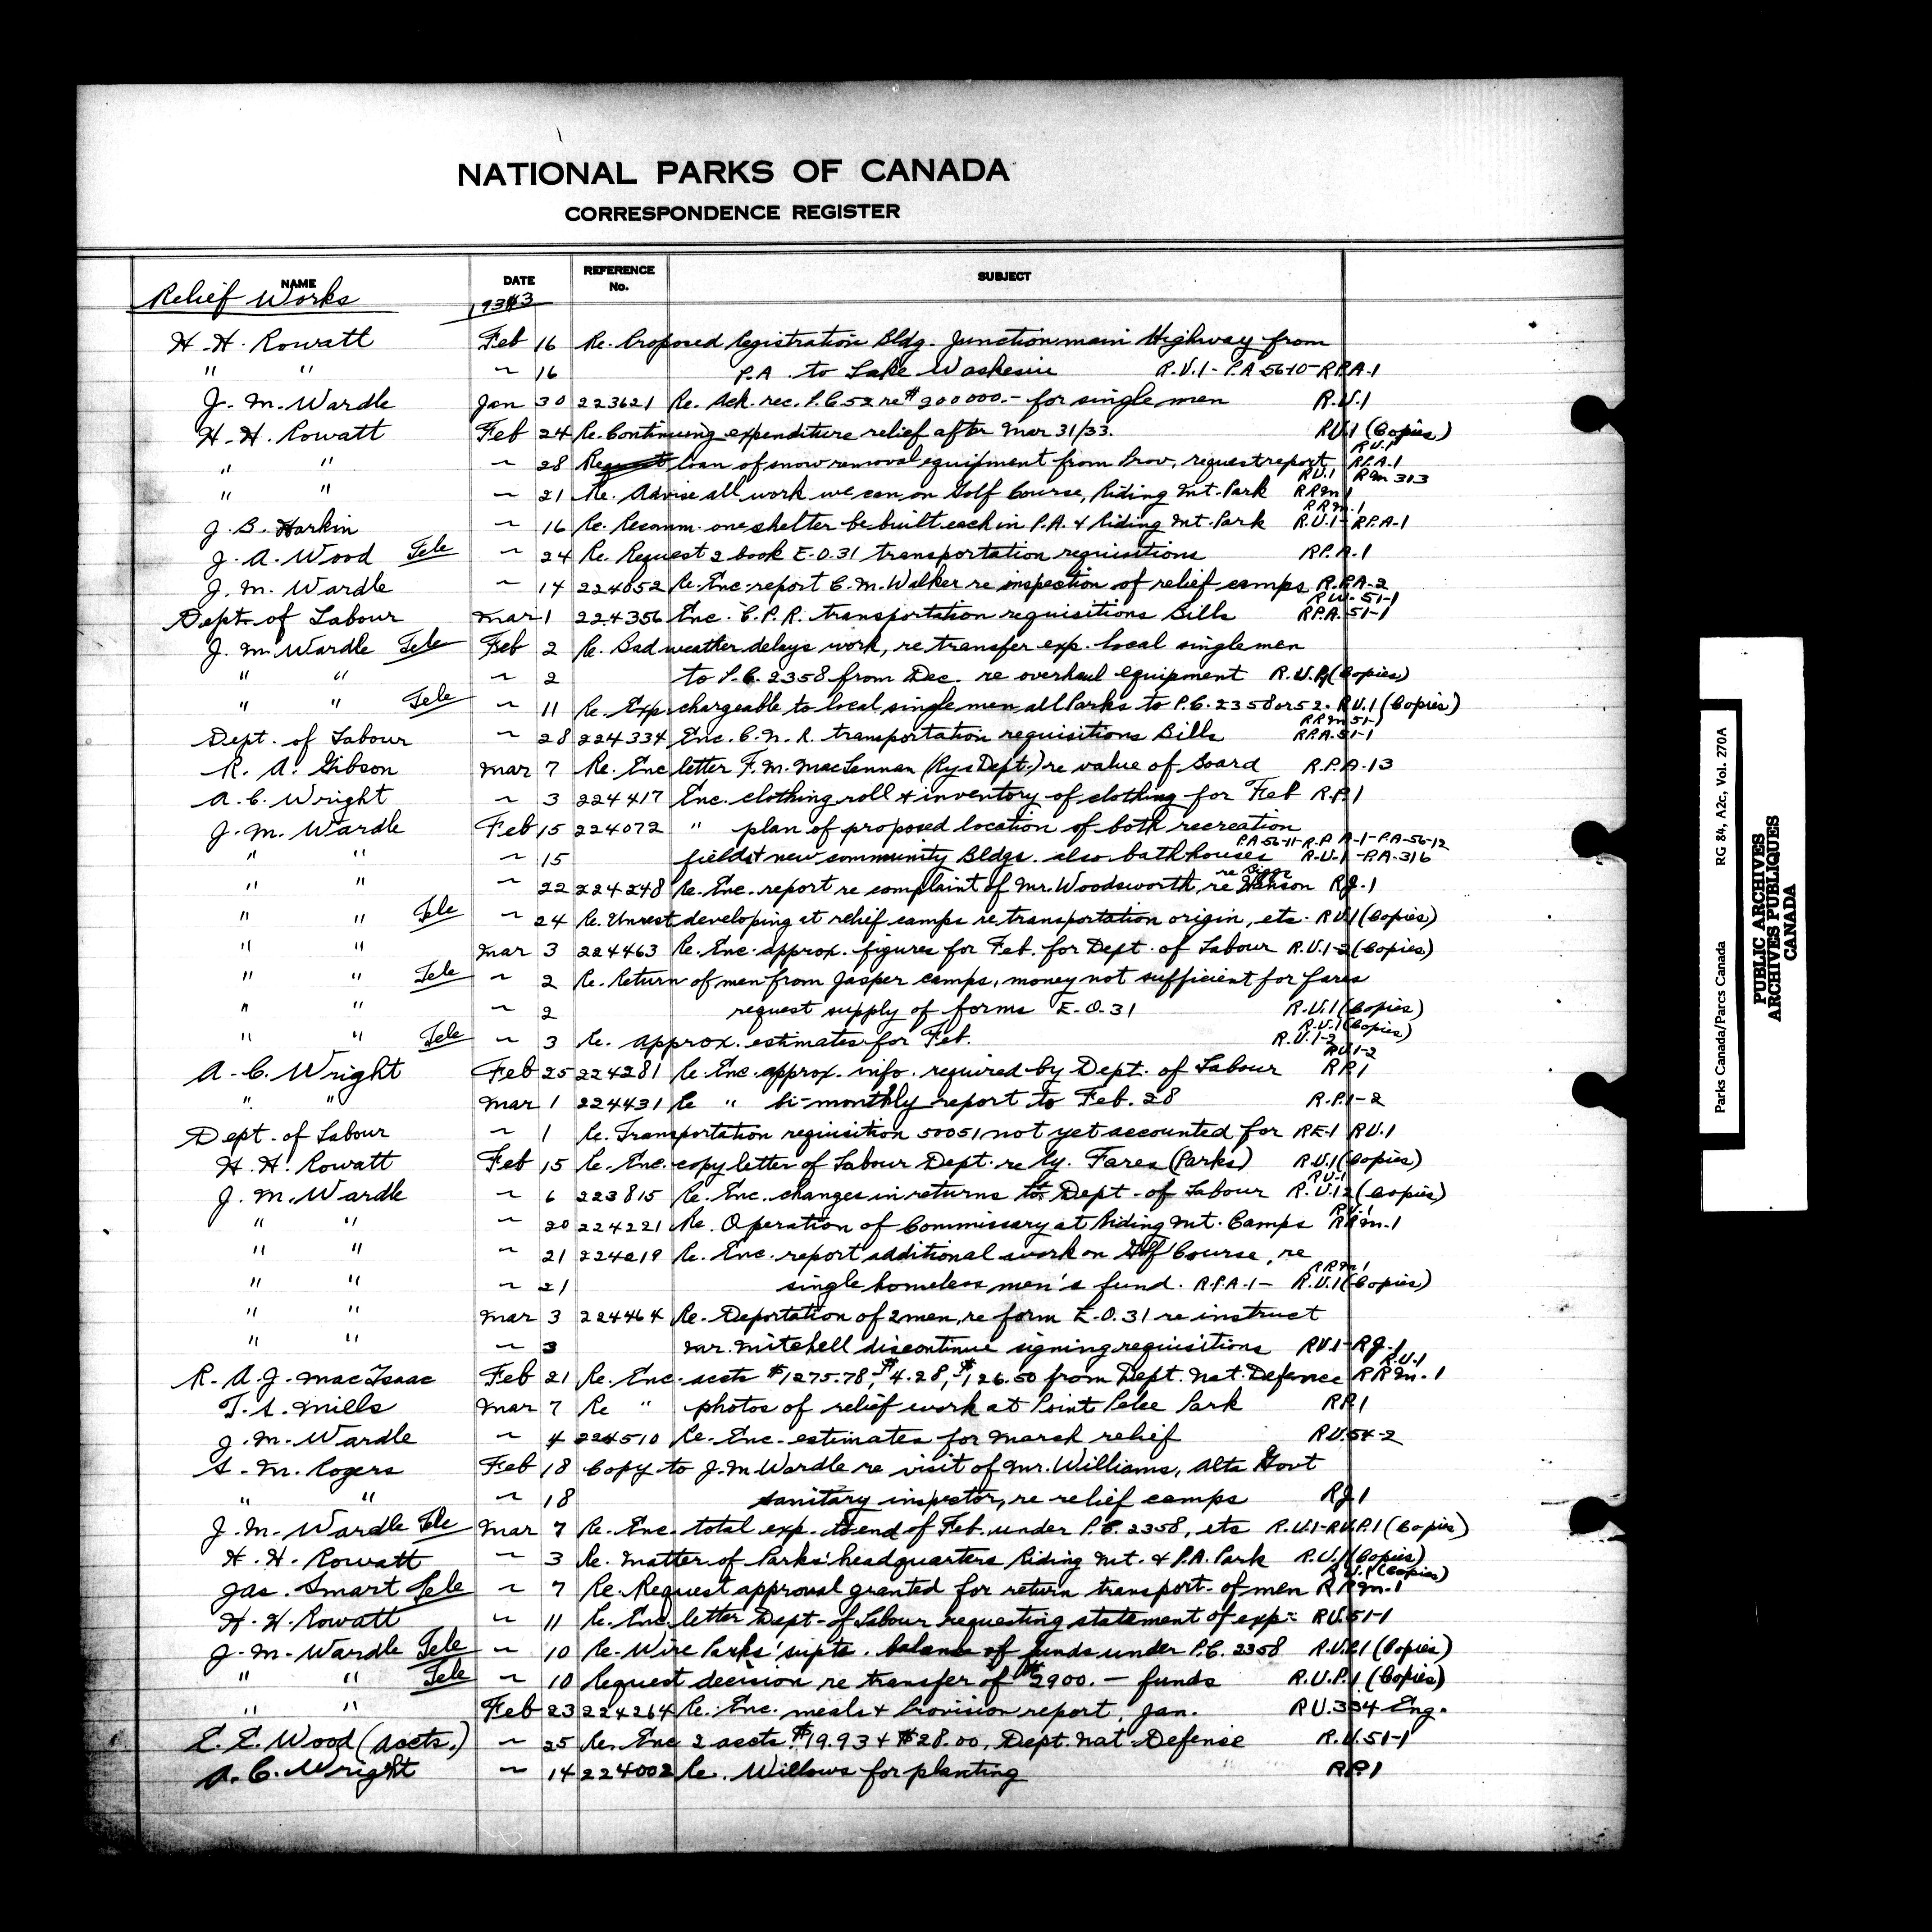 NATIONAL PARKS OF CANADA
CORRESPONDENCE REGISTER
NAME DATE REFERENCE No. SUBJECT
Relief Works 1933
H. H. Rowatt Feb 16 Re. Proposed Registration Bldg. Junction main Highway from
" " ~ 16 P.A. to Lake Waskesiu R.U.1 - P.A-56-10-RPA-1
J. M. Wardle Jan 30 223621 Re. Ack. rec. P.C. 52 re $200000.- for single men R.U.1
H. H. Rowatt Feb 24 Re. Continuing expenditure relief after Mar 31/33. RU.1 (Copies)
" " ~ 28 Request loan of snow removal equipment from Prov, request report RU.1 RPA-1
" " ~ 21 Re. Advise all work we can on Golf Course, Riding Mt. Park RU.1 RRM.1 RM 313
J. B. Harkin ~ 16 Re. Recomm. one shelter be built each in P.A. & Riding Mt. Park RRM.1 R.U.1-RPA-1
J. A. Wood Tele ~ 24 Re. Request 2 book E.O.31 transportation requisitions RP.A.1
J. M. Wardle ~ 14 224052 Re. Enc. report C. M. Walker re inspection of relief camps R.PA-2
Dept. of Labour Mar 1 224356 Enc. C.P.R. transportation requisitions Bills RU-51-1 RPA.51-1
J. M. Wardle Tele Feb 2 Re. Bad weather delays work, re transfer exp. local single men
" " ~ 2 to P.C. 2358 from Dec. re overhaul equipment R.U.P.1 (Copies)
" " Tele ~ 11 Re. Exp. chargeable to local single men all Parks to P.C. 2358 or 52. RU.1 (Copies)
Dept. of Labour ~ 28 224334 Enc. C.N.R. transportation requisitions Bills RRM 51-1 RPA.51-1
R. A. Gibson Mar 7 Re. Enc letter F. M. MacLennan (Rys Dept.) re value of board R.P.A-13
A. C. Wright ~ 3 224417 Enc. clothing roll & inventory of clothing for Feb R.P.1
J. M. Wardle Feb 15 224072 " plan of proposed location of both recreation
" " ~ 15 fields & new community Bldgs. also bathhouses P.A-56-11-R.P.A-1-P.A-56-12 R.U.1-P.A-316
" " ~ 22 224248 Re. Enc. report re complaint of Mr. Woodsworth, re Hanson RJ-1
" " Tele ~ 24 Re. Unrest developing at relief camps re transportation origin, etc. RU.1 (Copies)
" " Mar 3 224463 Re. Enc. approx. figures for Feb. for Dept. of Labour R.U.1-2 (Copies)
" " Tele ~ 2 Re. Return of men from Jasper camps, money not sufficient for fares
" " ~ 2 request supply of forms E.O.31 R.U.1 (Copies)
" " Tele ~ 3 Re. approx. estimates for Feb. R.U.1 (Copies) R.U.1-2
A. C. Wright Feb 25 224281 Re. Enc. approx. info. required by Dept. of Labour RU1-2 RP.1
" " Mar 1 224431 Re " bi-monthly report to Feb. 28 R.P.1-2
Dept. of Labour ~ 1 Re. Transportation requisition 50051 not yet accounted for RE-1 RU.1
H. H. Rowatt Feb 15 Re. Enc. copy letter of Labour Dept. re Ry. Fares (Parks) R.U.1 (Copies)
J. M. Wardle ~ 6 223815 Re. Enc. changes in returns to Dept. of Labour RU.1 R.U.12 (Copies)
" " ~ 20 224221 Re. Operation of Commissary at Riding Mt. Camps RU.1 RRM.1
" " ~ 21 224219 Re. Enc. report additional work on Golf Course, re
" " ~ 21 single homeless men's fund. R.P.A-1- RRM1 R.U.1 (Copies)
" " Mar 3 224464 Re. Deportation of 2 men, re form E.O.31 re instruct
" " ~ 3 Mr. Mitchell discontinue signing requisitions RU.1-RJ-1
R. A. J. MacIsaac Feb 21 Re. Enc. accts $1275.78, $4.28, $126.50 from Dept. Nat. Defence R.U.1 RRM.1
T. S. Mills Mar 7 Re " photos of relief work at Point Pelee Park RP.1
J. M. Wardle ~ 4 224510 Re. Enc. estimates for March relief RU.54-2
S. M. Rogers Feb 18 Copy to J. M. Wardle re visit of Mr. Williams, Alta Govt
" " ~ 18 sanitary inspector, re relief camps RJ1
J. M. Wardle Tele Mar 7 Re. Enc. total exp. to end of Feb. under P.C. 2358, etc R.U.1-RU.P.1 (Copies)
H. H. Rowatt ~ 3 Re. Matter of Parks' headquarters Riding Mt. & P.A. Park R.U.1 (Copies)
Jas. Smart Tele ~ 7 Re. Request approval granted for return transport. of men R.U.1 (Copies) RRM.1
H. H. Rowatt ~ 11 Re. Enc. letter Dept. of Labour requesting statement of exp. RU.51-1
J. M. Wardle Tele ~ 10 Re. Wire Parks' supts. balance of funds under P.C. 2358 R.U.P.1 (Copies)
" " Tele ~ 10 Request decision re transfer of $2900.- funds R.U.P.1 (Copies)
" " Feb 23 224264 Re. Enc. meals & Provision report, Jan. RU.334-Eng.
E. E. Wood (accts.) ~ 25 Re. Enc 2 accts $19.93 & $28.00, Dept. Nat. Defense R.U.51-1
A. C. Wright ~ 14 224002 Re. Willows for planting RP.1
Parks Canada/Parcs Canada RG 84, A2c, Vol. 270A
PUBLIC ARCHIVES
ARCHIVES PUBLIQUES
CANADA